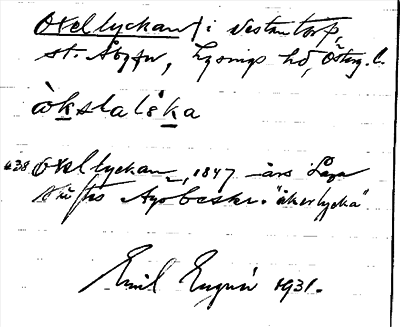 Oxellyckan i Västantorp,
St. Åby sn, Lysings hd, Östg. l.
àkslalỳka
438 Oxellyckan, 1847 års Laga
skiftes Ägobeskr. "åkerlycka"
Emil 1931.